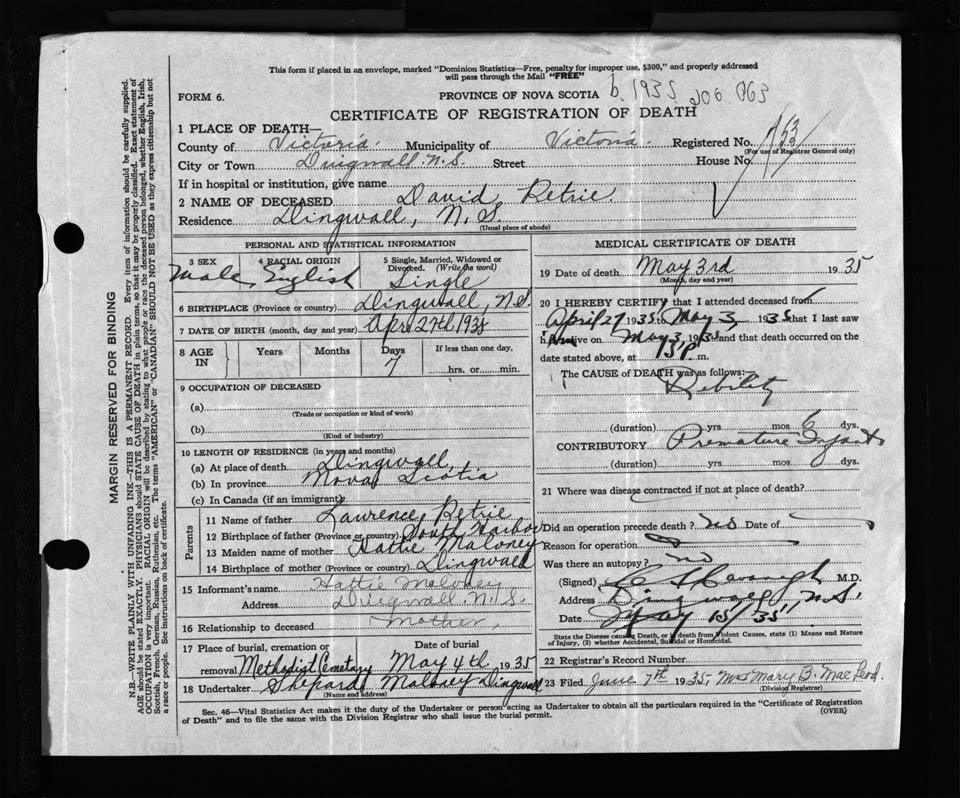 This form if placed in an envelope, marked "Dominion Statistics—Free, penalty for improper use, $300," and properly addressed
will pass through the Mail "FREE"
FORM 6.
PROVINCE OF NOVA SCOTIA b. 1935 206 063
CERTIFICATE OF REGISTRATION OF DEATH
1 PLACE OF DEATH—
County of Victoria. Municipality of Victoria. Registered No. 153
(For use of Registrar General only)
City or Town Dingwall N.S. Street House No.
If in hospital or institution, give name
2 NAME OF DECEASED David Petrie.
Residence Dingwall, N.S.
(Usual place of abode)
PERSONAL AND STATISTICAL INFORMATION
3 SEX Male
4 RACIAL ORIGIN English
5 Single, Married, Widowed or Divorced. (Write the word) Single
6 BIRTHPLACE (Province or country) Dingwall, N.S.
7 DATE OF BIRTH (month, day and year) Apr 27th 1935
8 AGE IN Years Months Days 7 If less than one day, hrs. or min.
9 OCCUPATION OF DECEASED
(a)
(Trade or occupation or kind of work)
(b)
(Kind of industry)
10 LENGTH OF RESIDENCE (in years and months)
(a) At place of death Dingwall,
(b) In province Nova Scotia
(c) In Canada (if an immigrant)
Parents
11 Name of father Lawrence Petrie
12 Birthplace of father (Province or country) South Harbor
13 Maiden name of mother Hattie Maloney
14 Birthplace of mother (Province or country) Dingwall
15 Informant's name Hattie Maloney
Address Dingwall N.S.
16 Relationship to deceased Mother.
17 Place of burial, cremation or removal Methodist Cemetary Date of burial May 4th 1935
18 Undertaker Shepard Maloney Dingwall
(Name and address)
MEDICAL CERTIFICATE OF DEATH
19 Date of death May 3rd 1935
(Month, day and year)
20 I HEREBY CERTIFY that I attended deceased from
April 27 1935 May 3, 1935 that I last saw
h alive on May 3, 1935 and that death occurred on the
date stated above, at m.
The CAUSE of DEATH was as follows:
Debility
(duration) yrs mos 6 dys.
CONTRIBUTORY Premature Infant
(duration) yrs mos dys.
21 Where was disease contracted if not at place of death?
Did an operation precede death? No Date of
Reason for operation
Was there an autopsy? No
(Signed) M.D.
Address Dingwall, N.S.
Date May 15/35
State the Disease causing Death, or in death from Violent Causes, state (1) Means and Nature
of Injury, (2) whether Accidental, Suicidal or Homicidal.
22 Registrar's Record Number
23 Filed June 7th 1935 Mrs Mary B. MacLeod
(Division Registrar)
Sec. 46—Vital Statistics Act makes it the duty of the Undertaker or person acting as Undertaker to obtain all the particulars required in the "Certificate of Registration
of Death" and to file the same with the Division Registrar who shall issue the burial permit.
(OVER)
MARGIN RESERVED FOR BINDING
N.B.—WRITE PLAINLY WITH UNFADING INK—THIS IS A PERMANENT RECORD. Every item of information should be carefully supplied.
AGE should be stated EXACTLY. PHYSICIANS should STATE CAUSE OF DEATH in plain terms, so that it may be properly classified. Exact statement of
OCCUPATION is very important. RACIAL ORIGIN will be described by stating to what people or race the deceased person belonged, whether English, Irish,
Scottish, French, German, Russian, Ruthenian, etc. The terms "AMERICAN" or "CANADIAN" SHOULD NOT BE USED as they express citizenship but not
a race or people. See instructions on back of certificate.